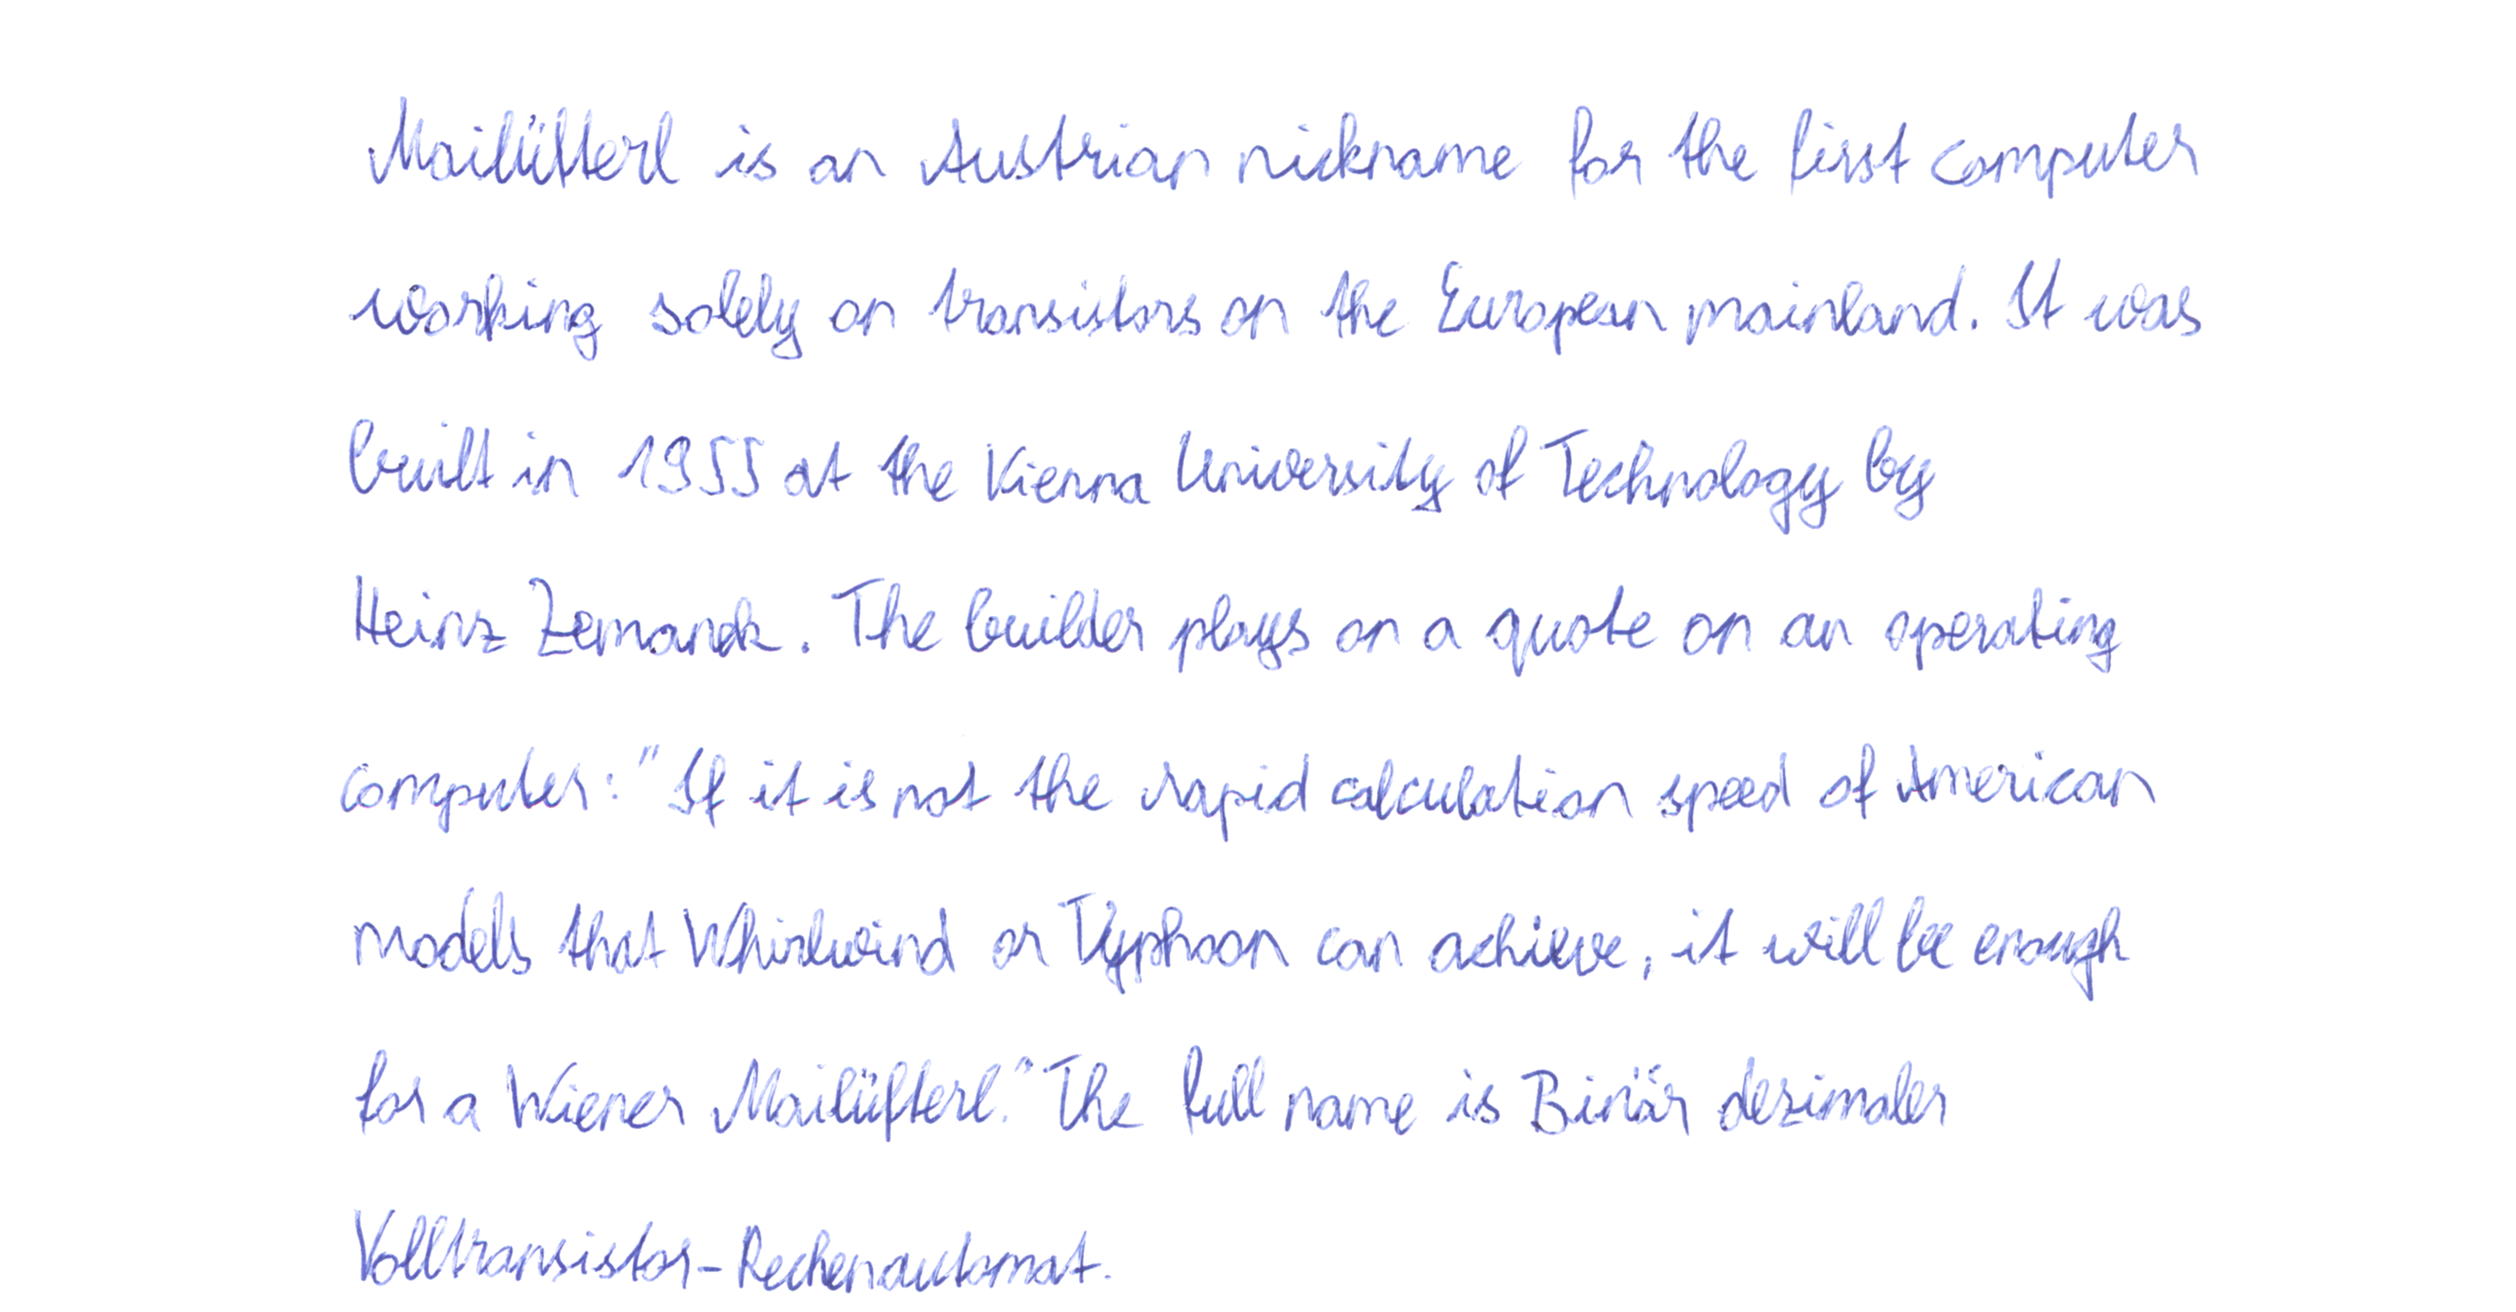 Mailüfterl is an Austrian nickname for the first computer
working solely on transistors on the European mainland. It was
built in 1955 at the Vienna University of Technology by
Heinz Zemanek. The builder plays on a quote on an operating
computer: "If it is not the rapid calculation speed of American
models that Whirlwind or Typhoon can achieve, it will be enough
for a Wiener Mailüfterl." The full name is Binär dezimaler
Volltransistor-Rechenautomat.